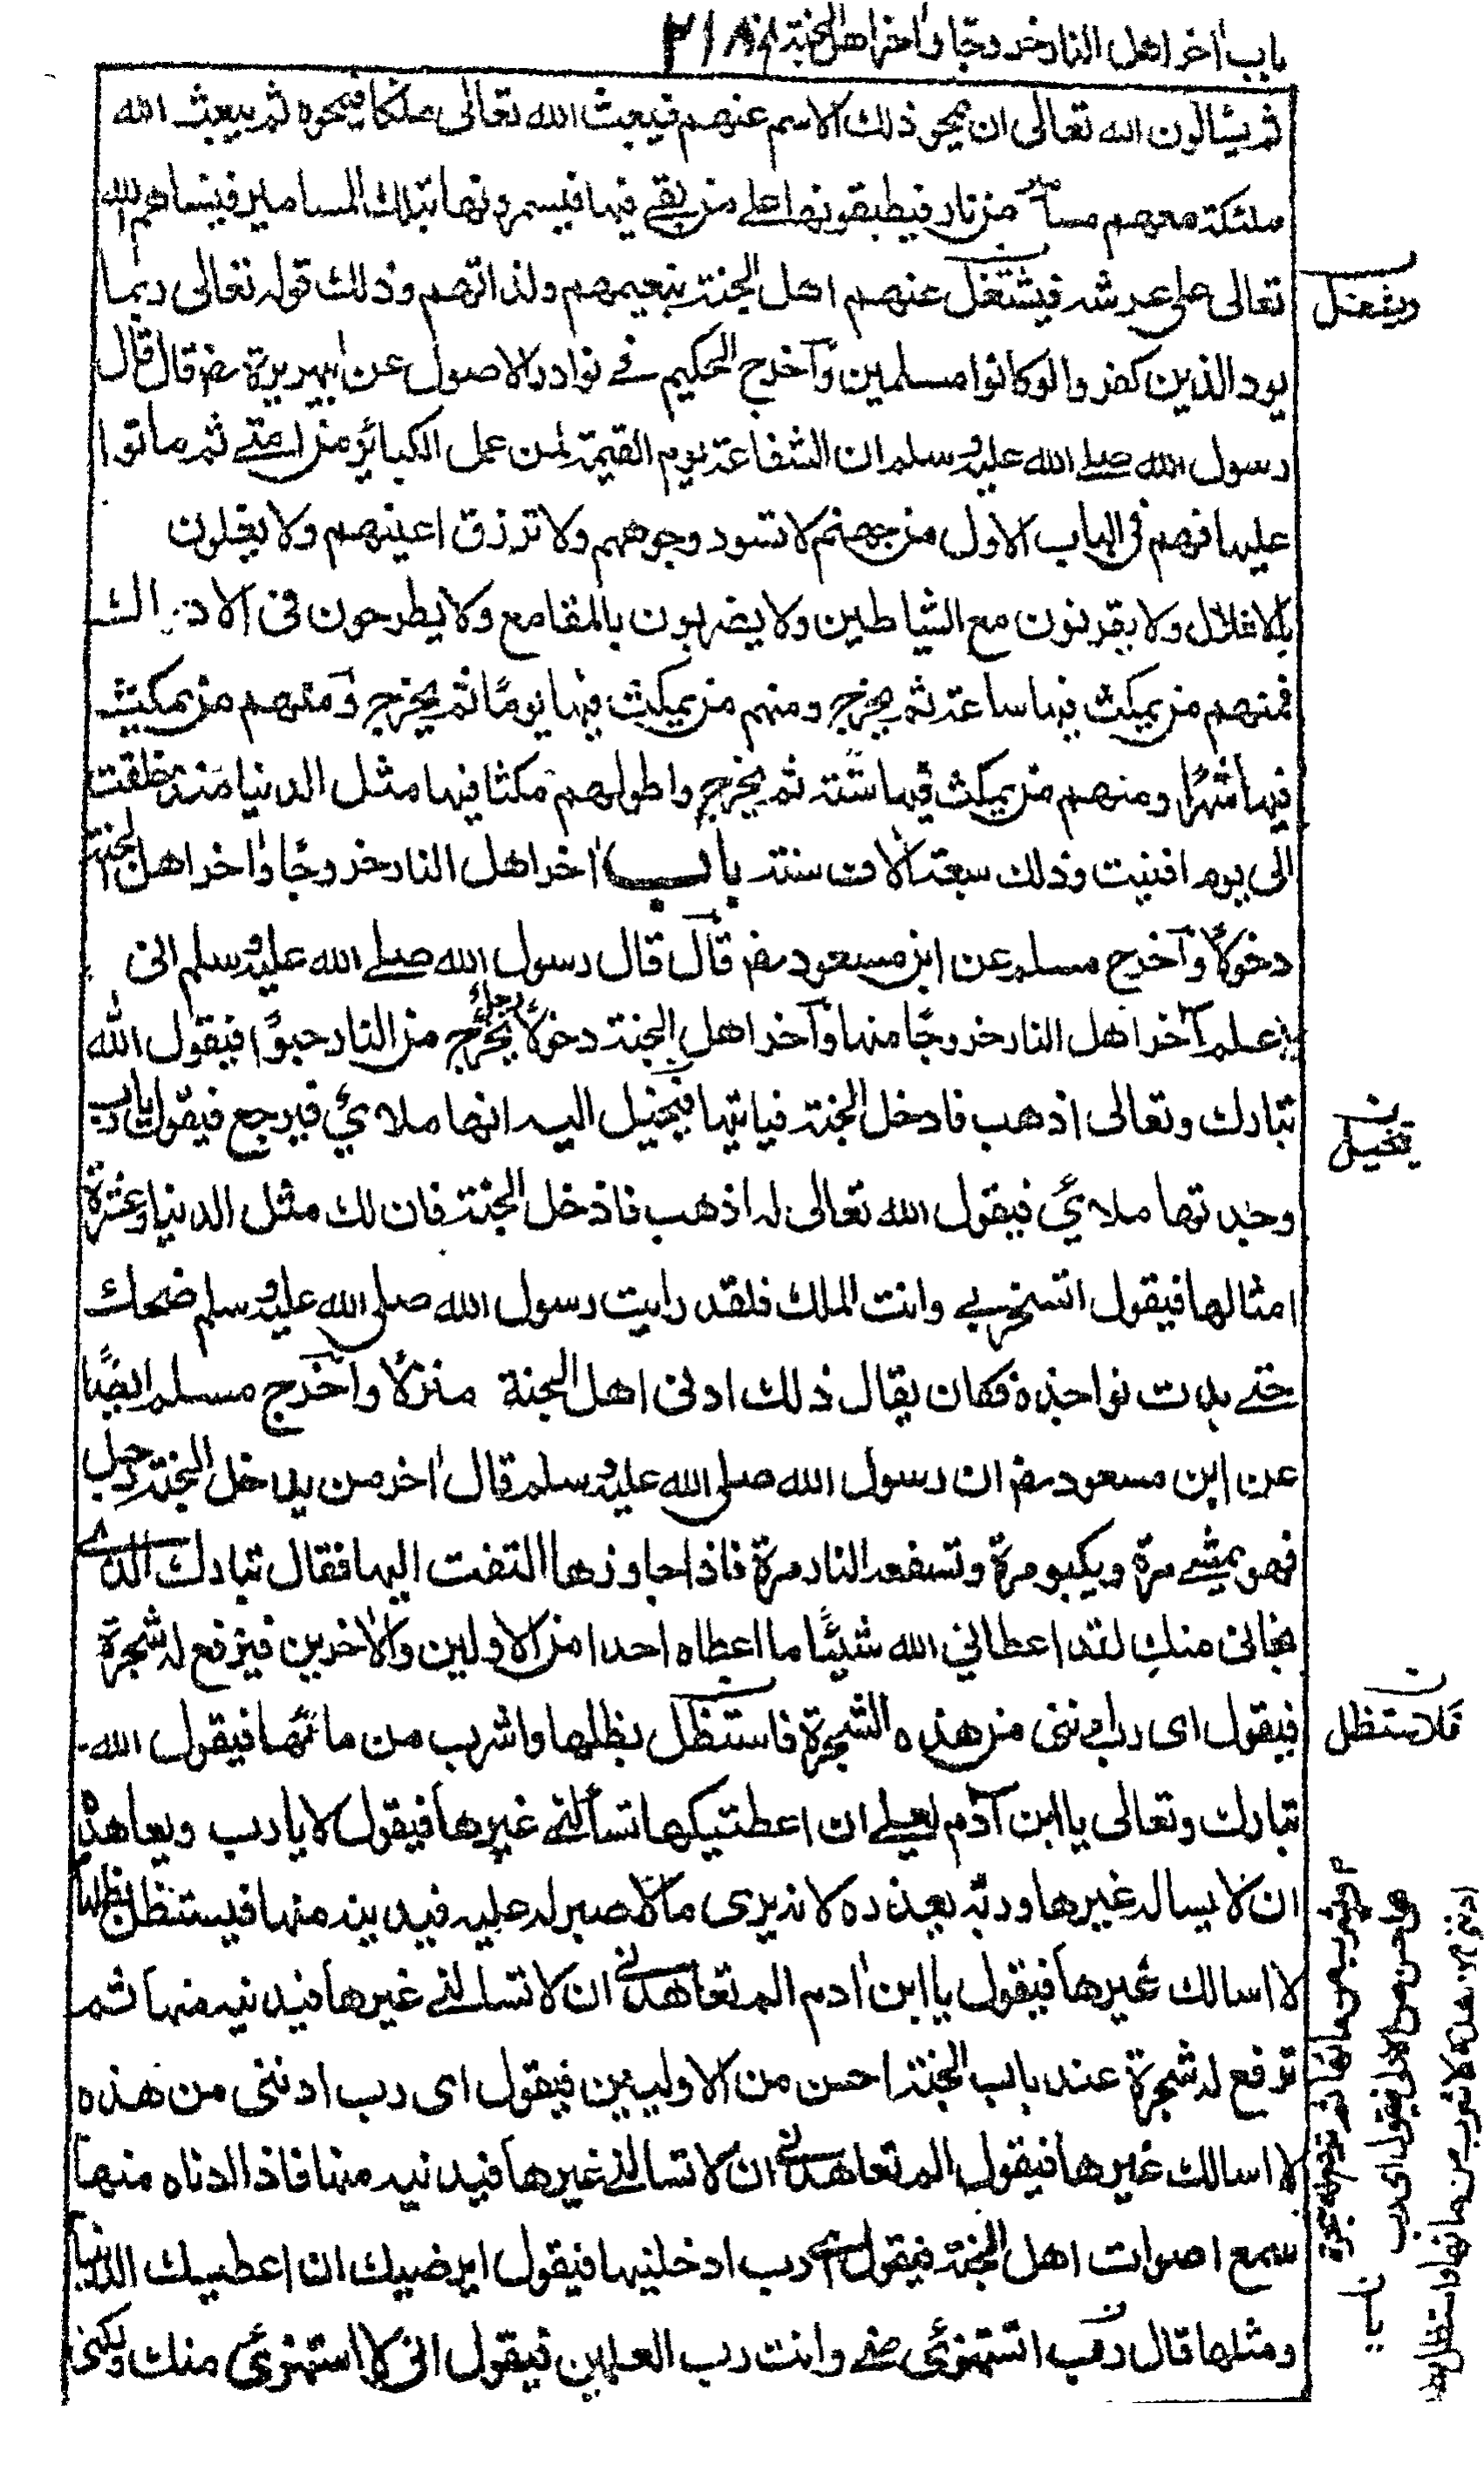 باب اٰخر اهل النار خروجا واٰخر اهل الجنة ٢١٨
ثم يسٔالون الله تعالى ان يمحو ذلك الاسم عنهم فيبعث الله تعالى ملكا فيمحوه ثم يبعث الله
ملئكة معهم مسامير من نار فيطبقونها على من بقے فيها فيسمرونها بتلك المسامير فينساهم الله
تعالى على عرشه فيشتغل عنهم اهل الجنة بنعيمهم ولذاتهم وذلك قوله تعالى ربما
يود الذين كفروا لو كانوا مسلمين وآخرج الحكيم فے نوادر الاصول عن ابي هريرة رضـ قال قال
رسول الله صلے الله عليه وسلم ان الشفاعة يوم القيمة لمن عمل الكبائر من امتے ثم ماتوا
عليها فهم فى الباب الاول من جهنم لا تسود وجوههم ولا تزرق اعينهم ولا يغلون
بالاغلال ولا يقرنون مع الشياطين ولا يضربون بالمقامع ولا يطرحون فى الادراك
فمنهم من يمكث فيها ساعة ثم يخرج ومنهم من يمكث فيها يومًا ثم يخرج ومنهم من يمكث
فيها شهرًا ومنهم من يمكث فيها سنة ثم يخرج واطولهم مكثا فيها مثل الدنيا منذ خلقت
الى يوم افنيت وذلك سبعة اٰلاف سنة باب اٰخر اهل النار خروجًا واٰخر اهل الجنة
دخولًا وآخرج مسلم عن ابن مسعود رضـ قال قال رسول الله صلے الله عليه وسلم انى
لاعلم آخر اهل النار خروجًا منها وآخر اهل الجنة دخولًا رجلٌ يخرج من النار حبوًا فيقول الله
تبارك وتعالى اذهب فادخل الجنة فياتيها فيخيل اليه انها ملائ فيرجع فيقول يا رب
وجدتها ملائ فيقول الله تعالى له اذهب فادخل الجنة فان لك مثل الدنيا وعشرة
امثالها فيقول اتسخر بے وانت الملك فلقد رايت رسول الله صلى الله عليه وسلم ضحك
حتے بدت نواجذه فكان يقال ذلك ادنى اهل الجنة منزلًا وآخرج مسلم ايضًا
عن ابن مسعود رضـ ان رسول الله صلى الله عليه وسلم قال اٰخر من يدخل الجنة رجل
فهو يمشے مرة ويكبو مرة وتسفعه النار مرة فاذا جاوزها التفت اليها فقال تبارك الذے
نجانى منكِ لقد اعطاني الله شيئًا ما اعطاه احدا من الاولين والاٰخرين فيرفع له شجرة
فيقول اى رب ادننى من هذه الشجرة فاستظل بظلها واشرب من مائها فيقول الله
تبارك وتعالى يا ابن آدم لعلے ان اعطتيكها تسألنے غيرها فيقول لا يا رب ويعاهده
ان لا يساله غيرها وربّه يعذره لانه يرى ما لا صبر له عليه فيدينه منها فيستظل بظلها
لا اسالك غيرها فيقول يا ابن اٰدم الم تعاهدنے ان لا تسالنے غيرها فيدنيه منها ثم
ترفع له شجرة عند باب الجنة احسن من الاوليين فيقول اى رب ادننى من هذه
لا اسالك غيرها فيقول الم تعاهدنے ان لا تسالنے غيرها فيدنيه منها فاذا ادناه منها
سمع اصوات اهل الجنة فيقول اے رب ادخلنيها فيقول ايرضيك ان اعطيك الدنيا
ومثلها قال رب اتستهزئ منے وانت رب العلمين فيقول انى لا استهزئ منك ولكنى
ويغفل
فتخيل
فلاستظل
ويشرب من مائها ثم ترفع له شجرة
هى احسن من الاولى فيقول اى رب
ادننى من هذه لاشرب من مائها واستظل بظلها
يا